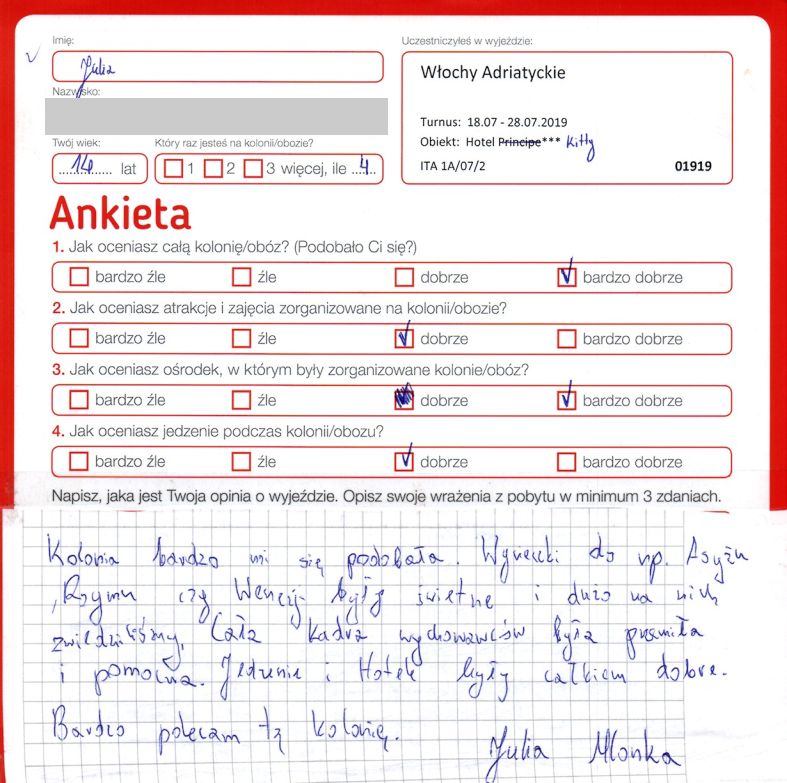 Imię:
Julia
Nazwisko:
Twój wiek:
14 lat
Który raz jesteś na kolonii/obozie?
1 2 3 więcej, ile 4
Uczestniczyłeś w wyjeździe:
Włochy Adriatyckie
Turnus: 18.07 - 28.07.2019
Obiekt: Hotel Principe*** Kitty
ITA 1A/07/2 01919
Ankieta
1. Jak oceniasz całą kolonię/obóz? (Podobało Ci się?)
bardzo źle źle dobrze bardzo dobrze
2. Jak oceniasz atrakcje i zajęcia zorganizowane na kolonii/obozie?
bardzo źle źle dobrze bardzo dobrze
3. Jak oceniasz ośrodek, w którym były zorganizowane kolonie/obóz?
bardzo źle źle dobrze bardzo dobrze
4. Jak oceniasz jedzenie podczas kolonii/obozu?
bardzo źle źle dobrze bardzo dobrze
Napisz, jaka jest Twoja opinia o wyjeździe. Opisz swoje wrażenia z pobytu w minimum 3 zdaniach.
Kolonia bardzo mi się podobała. Wycieczki do np. Asyżu
, Rzymu czy Wenecji były świetne i dużo na nich
zwiedziliśmy. Cała kadra wychowawców była przemiła
i pomocna. Jedzenie i Hotel były całkiem dobre.
Bardzo polecam tą kolonię.
Julia Mlonka